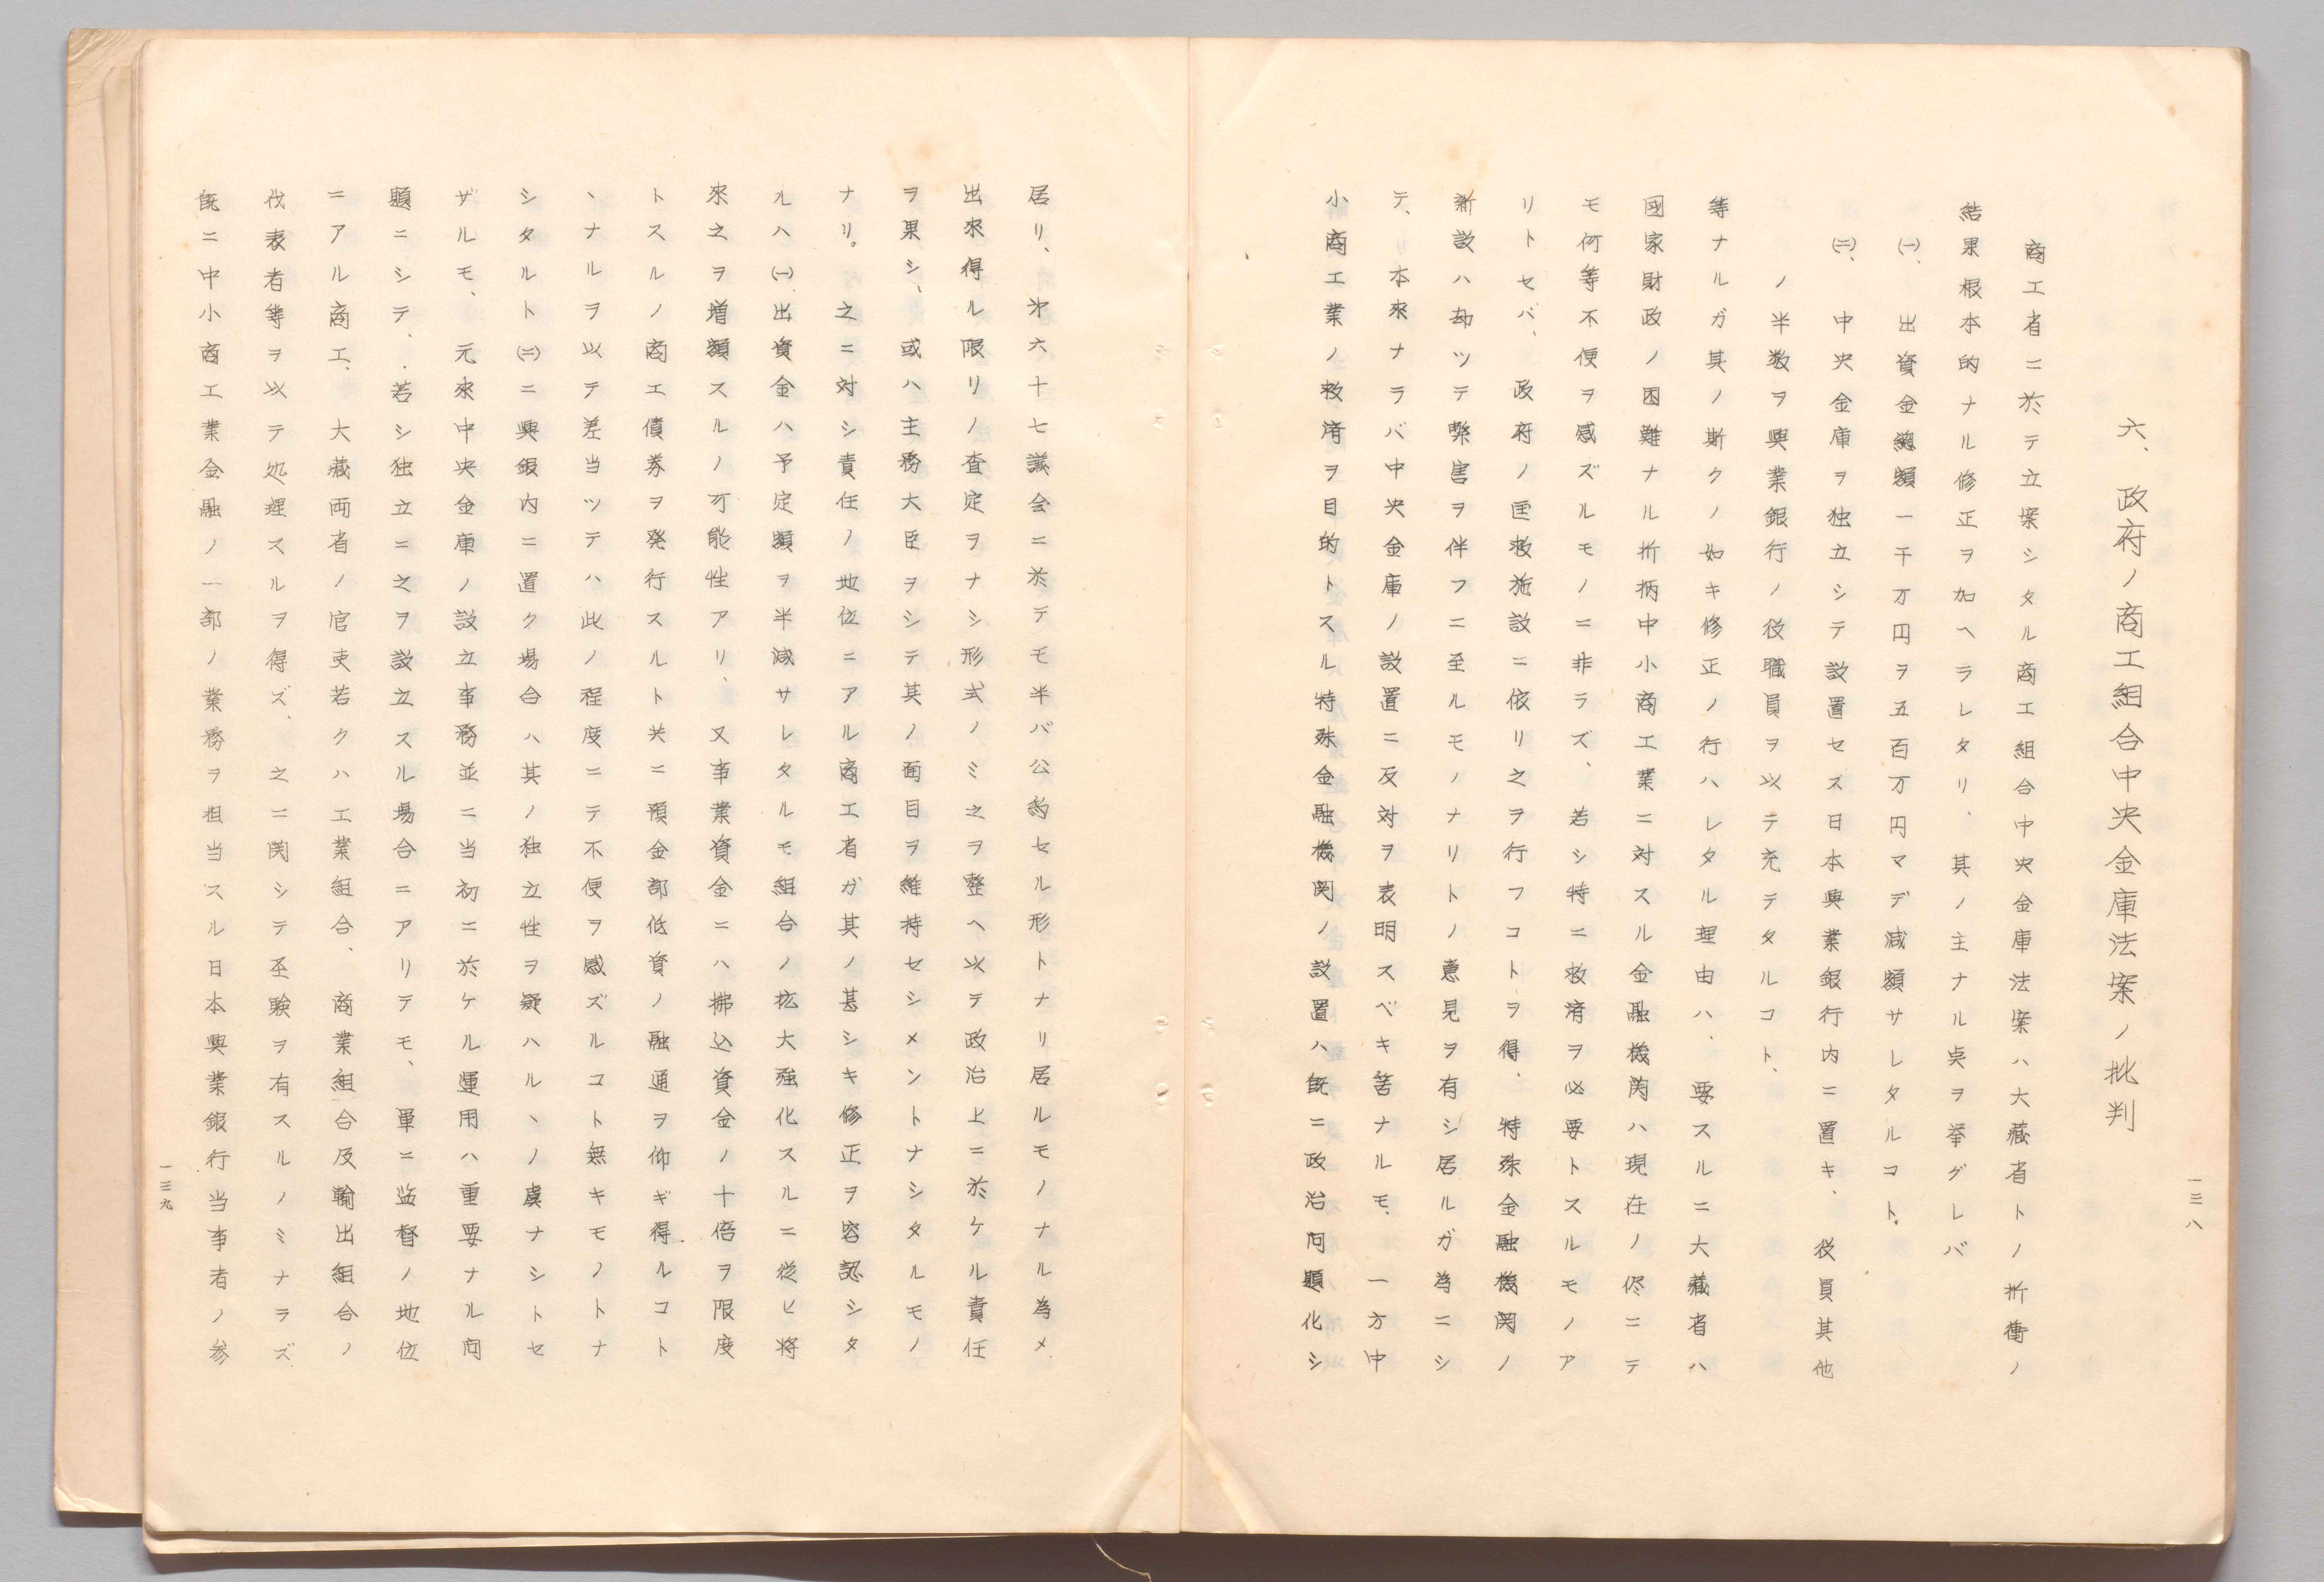 一三八
六、政府ノ商工組合中央金庫法案ノ批判
商工省ニ於テ立案シタル商工組合中央金庫法案ハ大藏省トノ折衝ノ
結果根本的ナル修正ヲ加ヘラレタリ、其ノ主ナル点ヲ挙グレバ
㈠、出資金総額一千万円ヲ五百万円マデ減額サレタルコト。
㈡、中央金庫ヲ独立シテ設置セス日本興業銀行内ニ置キ、役員其他
ノ半数ヲ興業銀行ノ役職員ヲ以テ充テタルコト、
等ナルガ其ノ斯クノ如キ修正ノ行ハレタル理由ハ、要スルニ大藏省ハ
國家財政ノ困難ナル折柄中小商工業ニ対スル金融機関ハ現在ノ侭ニテ
モ何等不便ヲ感ズルモノニ非ラズ、若シ特ニ救済ヲ必要トスルモノア
リトセバ、政府ノ匡救施設ニ依リ之ヲ行フコトヲ得、特殊金融機関ノ
新設ハ却ツテ弊害ヲ伴フニ至ルモノナリトノ意見ヲ有シ居ルガ為ニシ
テ、本來ナラバ中央金庫ノ設置ニ反対ヲ表明スベキ筈ナルモ、一方中
小商工業ノ救済ヲ目的トスル特殊金融機関ノ設置ハ既ニ政治問題化シ
居リ、㐧六十七議会ニ於テモ半バ公約セル形トナリ居ルモノナル為メ
出來得ル限リノ査定ヲナシ形式ノミ之ヲ整ヘ以テ政治上ニ於ケル責任
ヲ果シ、或ハ主務大臣ヲシテ其ノ面目ヲ維持セシメントナシタルモノ
ナリ。之ニ対シ責任ノ地位ニアル商工省ガ其ノ甚シキ修正ヲ容認シタ
ルハ㈠出資金ハ予定額ヲ半減サレタルモ組合ノ拡大強化スルニ從ヒ将
來之ヲ増額スルノ可能性アリ、又事業資金ニハ拂込資金ノ十倍ヲ限度
トスルノ商工債券ヲ発行スルト共ニ預金部低資ノ融通ヲ仰ギ得ルコト
ヽナルヲ以テ差当ツテハ此ノ程度ニテ不便ヲ感ズルコト無キモノトナ
シタルト㈡ニ興銀内ニ置ク場合ハ其ノ独立性ヲ疑ハルヽノ虞ナシトセ
ザルモ、元來中央金庫ノ設立事務並ニ当初ニ於ケル運用ハ重要ナル問
題ニシテ、若シ独立ニ之ヲ設立スル場合ニアリテモ、單ニ監督ノ地位
ニアル商工、大藏両者ノ官吏若クハ工業組合、商業組合及輸出組合ノ
代表者等ヲ以テ処理スルヲ得ズ、之ニ関シテ圣験ヲ有スルノミナラズ
既ニ中小商工業金融ノ一部ノ業務ヲ担当スル日本興業銀行当事者ノ参
一三九